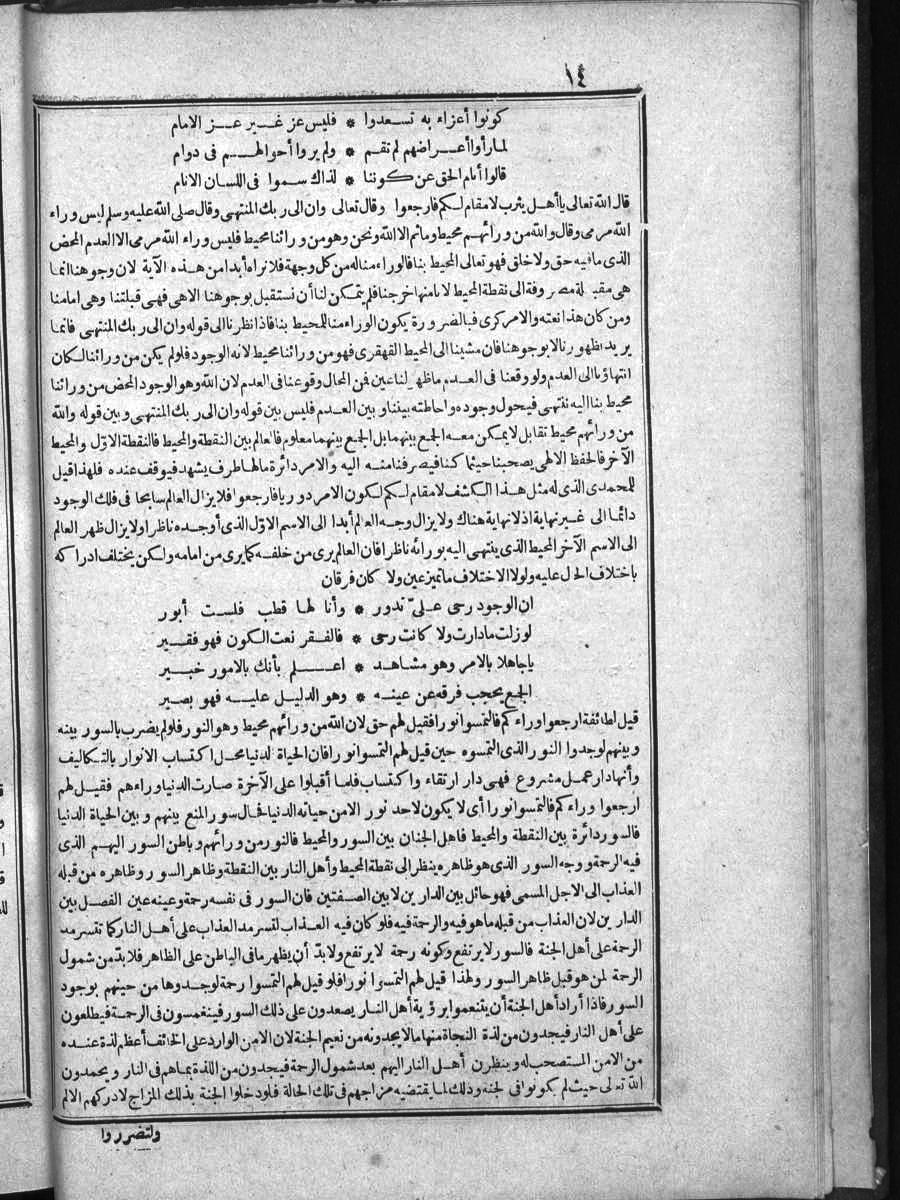 ١٤
كونوا أعزاء به تسعدوا * فليس عز غير عز الامام
لما رأوا أعراضهم لم تقم * ولم يروا أحوالهم فى دوام
قالوا أنام الحق عن كوننا * لذاك سموا فى اللسان الانام
قال الله تعالى يا أهل يثرب لا مقام لكم فارجعوا وقال تعالى وان الى ربك المنتهى وقال صلى الله عليه وسلم ليس وراء
الله مرمى وقال والله من ورائهم محيط وما ثم الا الله ونحن وهو من ورائنا محيط فليس وراء الله مرمى الا العدم المحض
الذى ما فيه حق ولا خلق فهو تعالى المحيط بنا فالوراء منا له من كل وجهة فلا نراه أبدا من هذه الآية لان وجوهنا انما
هى مقبلة مصروفة الى نقطة المحيط لانا منها خرجنا فلم يتمكن لنا أن نستقبل بوجوهنا الاهى فهى قبلتنا وهى امامنا
ومن كان هذا نعته والامر كرى فبالضرورة يكون الوراء منا للمحيط بنا فاذا نظرنا الى قوله وان الى ربك المنتهى فانما
يريد بظهورنا لا بوجوهنا فان مشينا الى المحيط القهقرى فهو من ورائنا محيط لانه الوجود فلو لم يكن من ورائنا لكان
انتهاؤنا الى العدم ولو وقعنا فى العدم ما ظهر لنا عين فمن المحال وقوعنا فى العدم لان الله وهو الوجود المحض من ورائنا
محيط بنا اليه ننتهى فيحول وجوده واحاطته بيننا وبين العدم فليس بين قوله وان الى ربك المنتهى وبين قوله والله
من ورائهم محيط تقابل لا يمكن معه الجمع بينهما بل الجمع بينهما معلوم فالعالم بين النقطة والمحيط فالنقطة الاوّل والمحيط
الآخر فالحفظ الالهى يصحبنا حيثما كنا فيصرفنا منه اليه والامر دائرة ما لها طرف يشهد فيوقف عنده فلهذا قيل
للمحمدى الذى له مثل هذا الكشف لا مقام لكم لكون الامر دوريا فارجعوا فلا يزال العالم سابحا فى فلك الوجود
دائما الى غير نهاية اذ لا نهاية هناك ولا يزال وجه العالم أبدا الى الاسم الاوّل الذى أوجده ناظرا ولا يزال ظهر العالم
الى الاسم الآخر المحيط الذى ينتهى اليه بورائه ناظرا فان العالم يرى من خلفه كما يرى من امامه ولكن يختلف ادراكه
باختلاف الحال عليه ولولا الاختلاف ما تميز عين ولا كان فرقان
ان الوجود رحى علىّ تدور * وأنا لها قطب فلست أبور
لو زلت ما دارت ولا كانت رحى * فالفقر نعت الكون فهو فقير
يا جاهلا بالامر وهو مشاهد * اعلم بأنك بالامور خبير
الجمع يحجب فرقه عن عينه * وهو الدليل عليه فهو بصير
قيل لطائفة ارجعوا وراءكم فالتمسوا نورا فقيل لهم حق لان الله من ورائهم محيط وهو النور فلو لم يضرب بالسور بينه
وبينهم لوجدوا النور الذى التمسوه حين قيل لهم التمسوا نورا فان الحياة الدنيا محل اكتساب الانوار بالتكاليف
وأنها دار عمل مشروع فهى دار ارتقاء واكتساب فلما أقبلوا على الآخرة صارت الدنيا وراءهم فقيل لهم
ارجعوا وراءكم فالتمسوا نورا أى لا يكون لاحد نور الا من حياته الدنيا فحال سور المنع بينهم وبين الحياة الدنيا
فالسور دائرة بين النقطة والمحيط فاهل الجنان بين السور والمحيط فالنور من ورائهم وباطن السور اليهم الذى
فيه الرحمة ووجه السور الذى هو ظاهره ينظر الى نقطة المحيط وأهل النار بين النقطة وظاهر السور وظاهره من قبله
العذاب الى الاجل المسمى فهو حائل بين الدارين لا بين الصفتين فان السور فى نفسه رحمة وعينه عين الفصل بين
الدارين لان العذاب من قبله ما هو فيه والرحمة فيه فلو كان فيه العذاب لتسرمد العذاب على أهل النار كما تسرمد
الرحمة على أهل الجنة فالسور لا يرتفع وكونه رحمة لا يرتفع ولا بدّ أن يظهر ما فى الباطن على الظاهر فلا بدّ من شمول
الرحمة لمن هو قبل ظاهر السور ولهذا قيل لهم التمسوا نورا فلو قيل لهم التمسوا رحمة لوجدوها من حينهم بوجود
السور فاذا أراد أهل الجنة أن يتنعموا برؤية أهل النار يصعدون على ذلك السور فينغمسون فى الرحمة فيطلعون
على أهل النار فيجدون من لذة النجاة منها ما لا يجدونه من نعيم الجنة لان الامن الوارد على الخائف أعظم لذة عنده
من الامن المستصحب له وينظرن أهل النار اليهم بعد شمول الرحمة فيجدون من اللذة بما هم فى النار ويحمدون
الله تعالى حيث لم يكونوا فى الجنة وذلك لما يقتضيه مزاجهم فى تلك الحالة فلو دخلوا الجنة بذلك المزاج لادركهم الالم
ولتضرروا